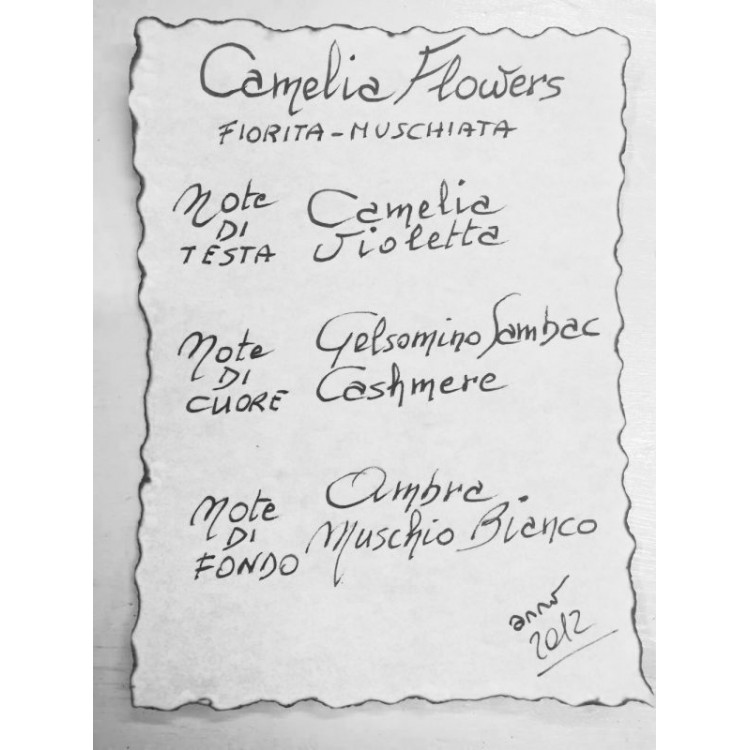 Camelia Flowers
FIORITA-MUSCHIATA
Note
DI
TESTA
Camelia
Violetta
Note
DI
CUORE
Gelsomino Sambac
Cashmere
Note
DI
FONDO
Ambra
Muschio Bianco
anno
2012